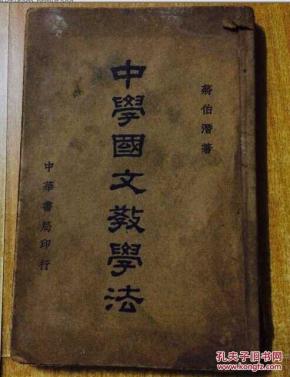 蔣伯潛著
中學國文教學法
中華書局印行
孔夫子旧书网